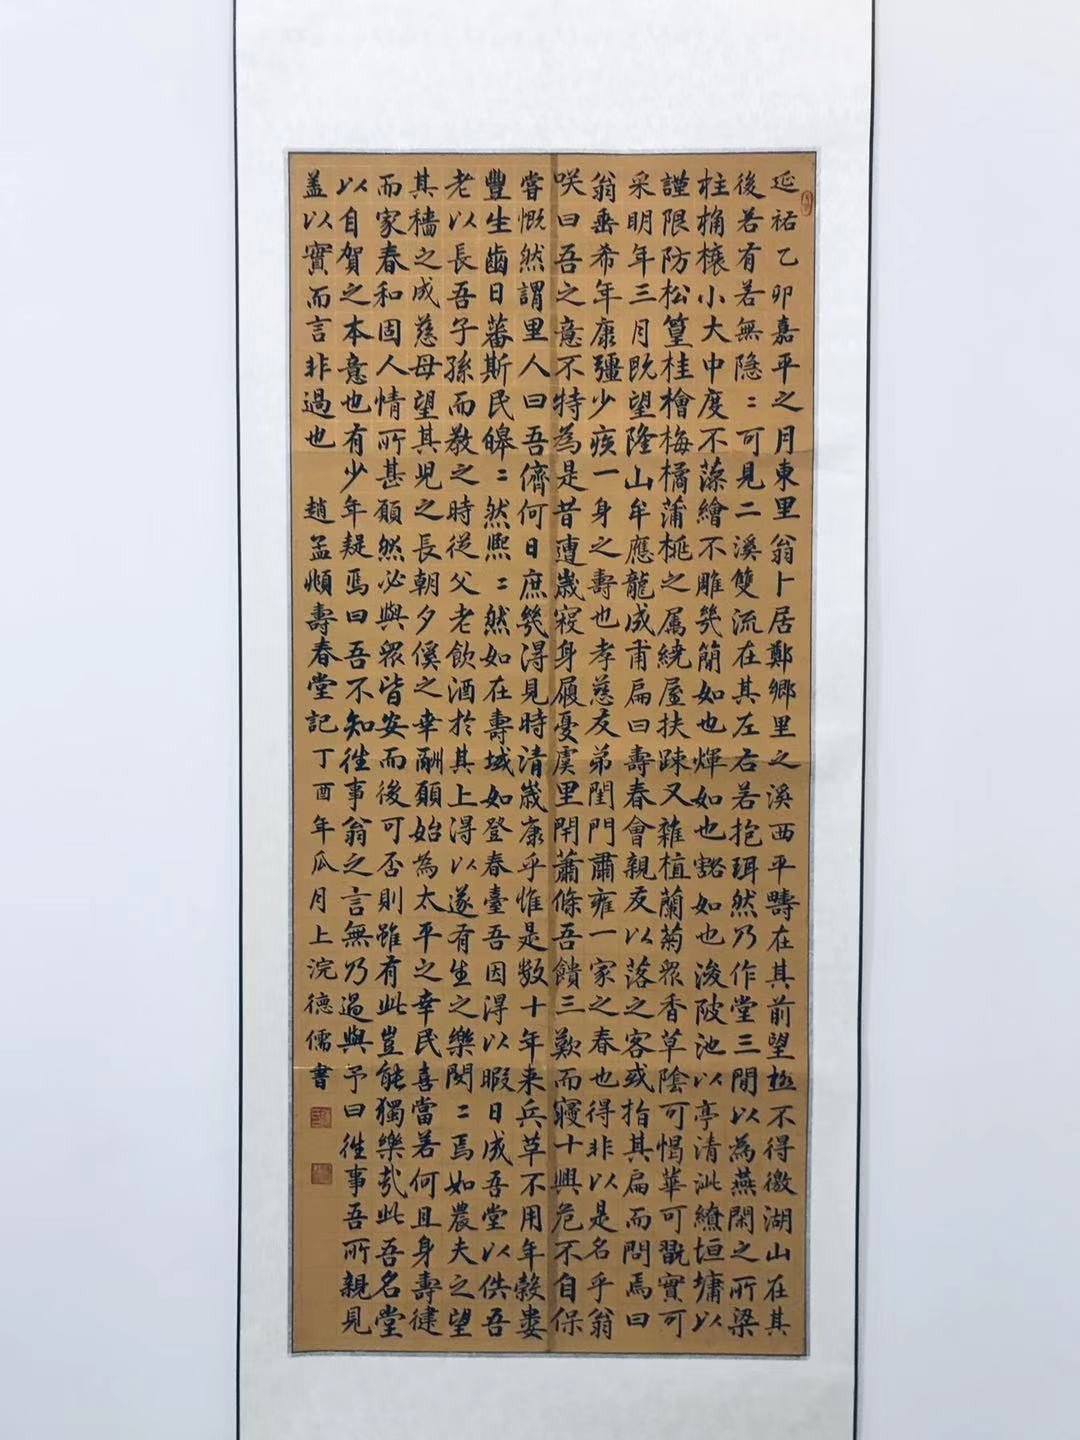 延祐乙卯嘉平之月東里翁卜居鄭鄉里之溪西平疇在其前望極不得徼湖山在其
後若有若無隱〻可見二溪雙流在其左右若抱珥然乃作堂三間以為燕閑之所梁
柱桷榱小大中度不藻繪不雕幾簡如也煇如也豁如也浚陂池以亭清泚繚垣墉以
謹限防松篁桂檜梅橘蒲桃之属繞屋扶踈又雜植蘭菊眾香草陰可愒華可翫實可
采明年三月既望隆山牟應龍成甫扁曰壽春會親友以落之客或指其扁而問焉曰
翁垂希年康彊少疾一身之壽也孝慈友弟閨門肅雍一家之春也得非以是名乎翁
咲曰吾之意不特為是昔遭嵗祲身履憂虞里閈蕭條吾饋三歎而寢十興危不自保
嘗慨然謂里人曰吾儕何日庶幾淂見時清嵗康乎惟是数十年来兵革不用年穀婁
豐生齒日蕃斯民皞〻然熙〻然如在壽域如登春臺吾因淂以暇日成吾堂以供吾
老以長吾子孫而教之時從父老飲酒於其上得以遂有生之樂閔〻焉如農夫之望
其穡之成慈母望其児之長朝夕傒之幸酬願始為太平之幸民喜當若何且身壽健
而家春和固人情所甚願然必與眾皆安而後可否則雖有此豈能獨樂㢤此吾名堂
以自賀之本意也有少年疑焉曰吾不知徃事翁之言無乃過與予曰徃事吾所親見
盖以實而言非過也 趙孟頫壽春堂記丁酉年瓜月上浣德儒書